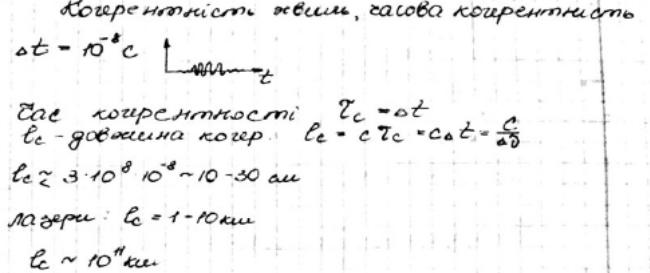 Когерентність хвиль, часова когерентність
Δt = 10⁻⁸ c
t
Час когерентності τc = Δt
lc - довжина когер. lc = cτc = cΔt = c/Δν
lc ≈ 3·10⁸ 10⁻⁸ ~ 10-30 см
лазери: lc = 1-10 км
lc ~ 10¹¹ км